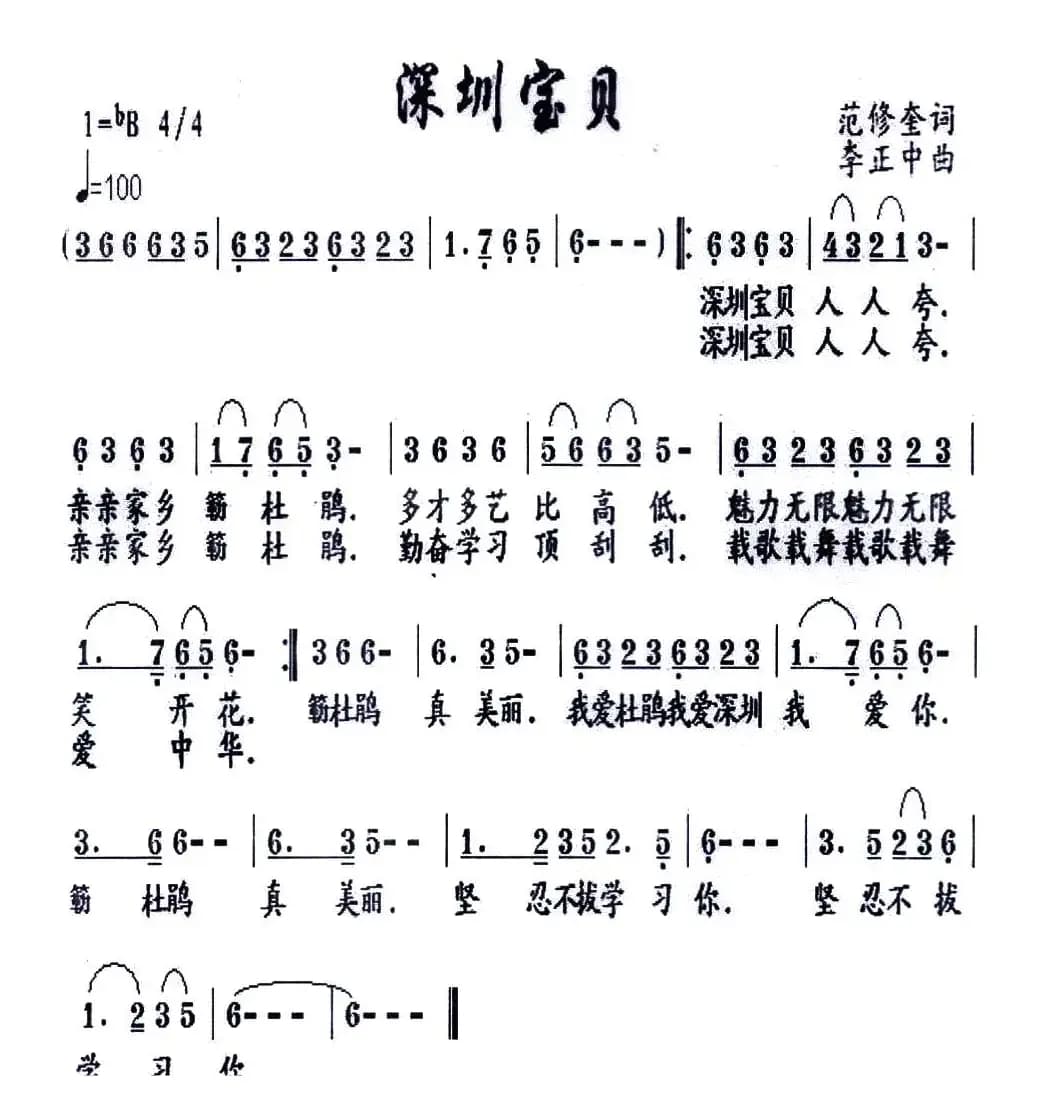 深圳宝贝
1=ᵇB 4/4
范修奎词
♩=100
李正中曲
(366 635 | 6323 6323 | 1. 7 6 5 | 6 - - - ) ‖: 6 3 6 3 | 43 21 3 - |
深圳宝贝 人 人 夸.
深圳宝贝 人 人 夸.
6 3 6 3 | 17 65 3 - | 3 6 3 6 | 56 63 5 - | 63 23 63 23 |
亲亲家乡 簕 杜 鹃. 多才多艺 比 高 低. 魅力无限魅力无限
亲亲家乡 簕 杜 鹃. 勤奋学习 顶 刮 刮. 载歌载舞载歌载舞
1. 7 65 6 - :‖ 3 6 6 - | 6. 3 5 - | 6323 6323 | 1. 7 65 6 - |
笑 开 花. 簕杜鹃 真 美丽. 我爱杜鹃我爱深圳 我 爱 你.
爱 中 华.
3. 6 6 - - | 6. 3 5 - - | 1. 2 35 2. 5 | 6 - - - | 3. 5 23 6 |
簕 杜鹃 真 美丽. 坚 忍不拔学 习 你. 坚 忍不 拔
1. 2 3 5 | 6 - - - | 6 - - - ‖
学 习 你